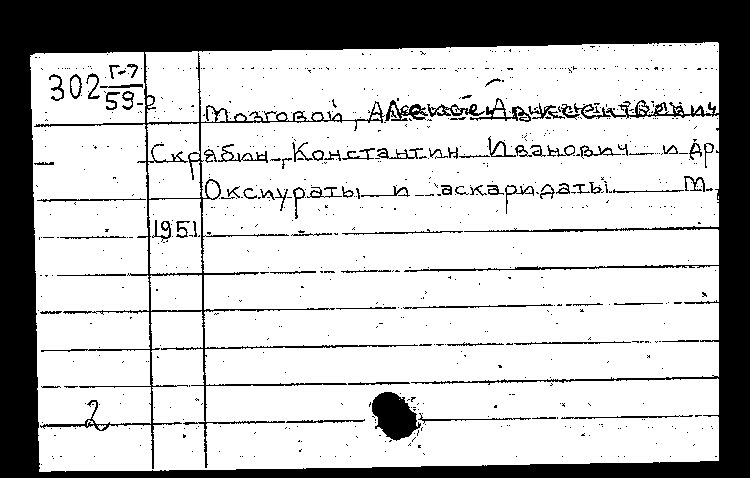 302 Г-7
59-2
Мозговой,
Скрябин, Константин Иванович и др.
Оксиураты и аскаридаты М,
1951.
2